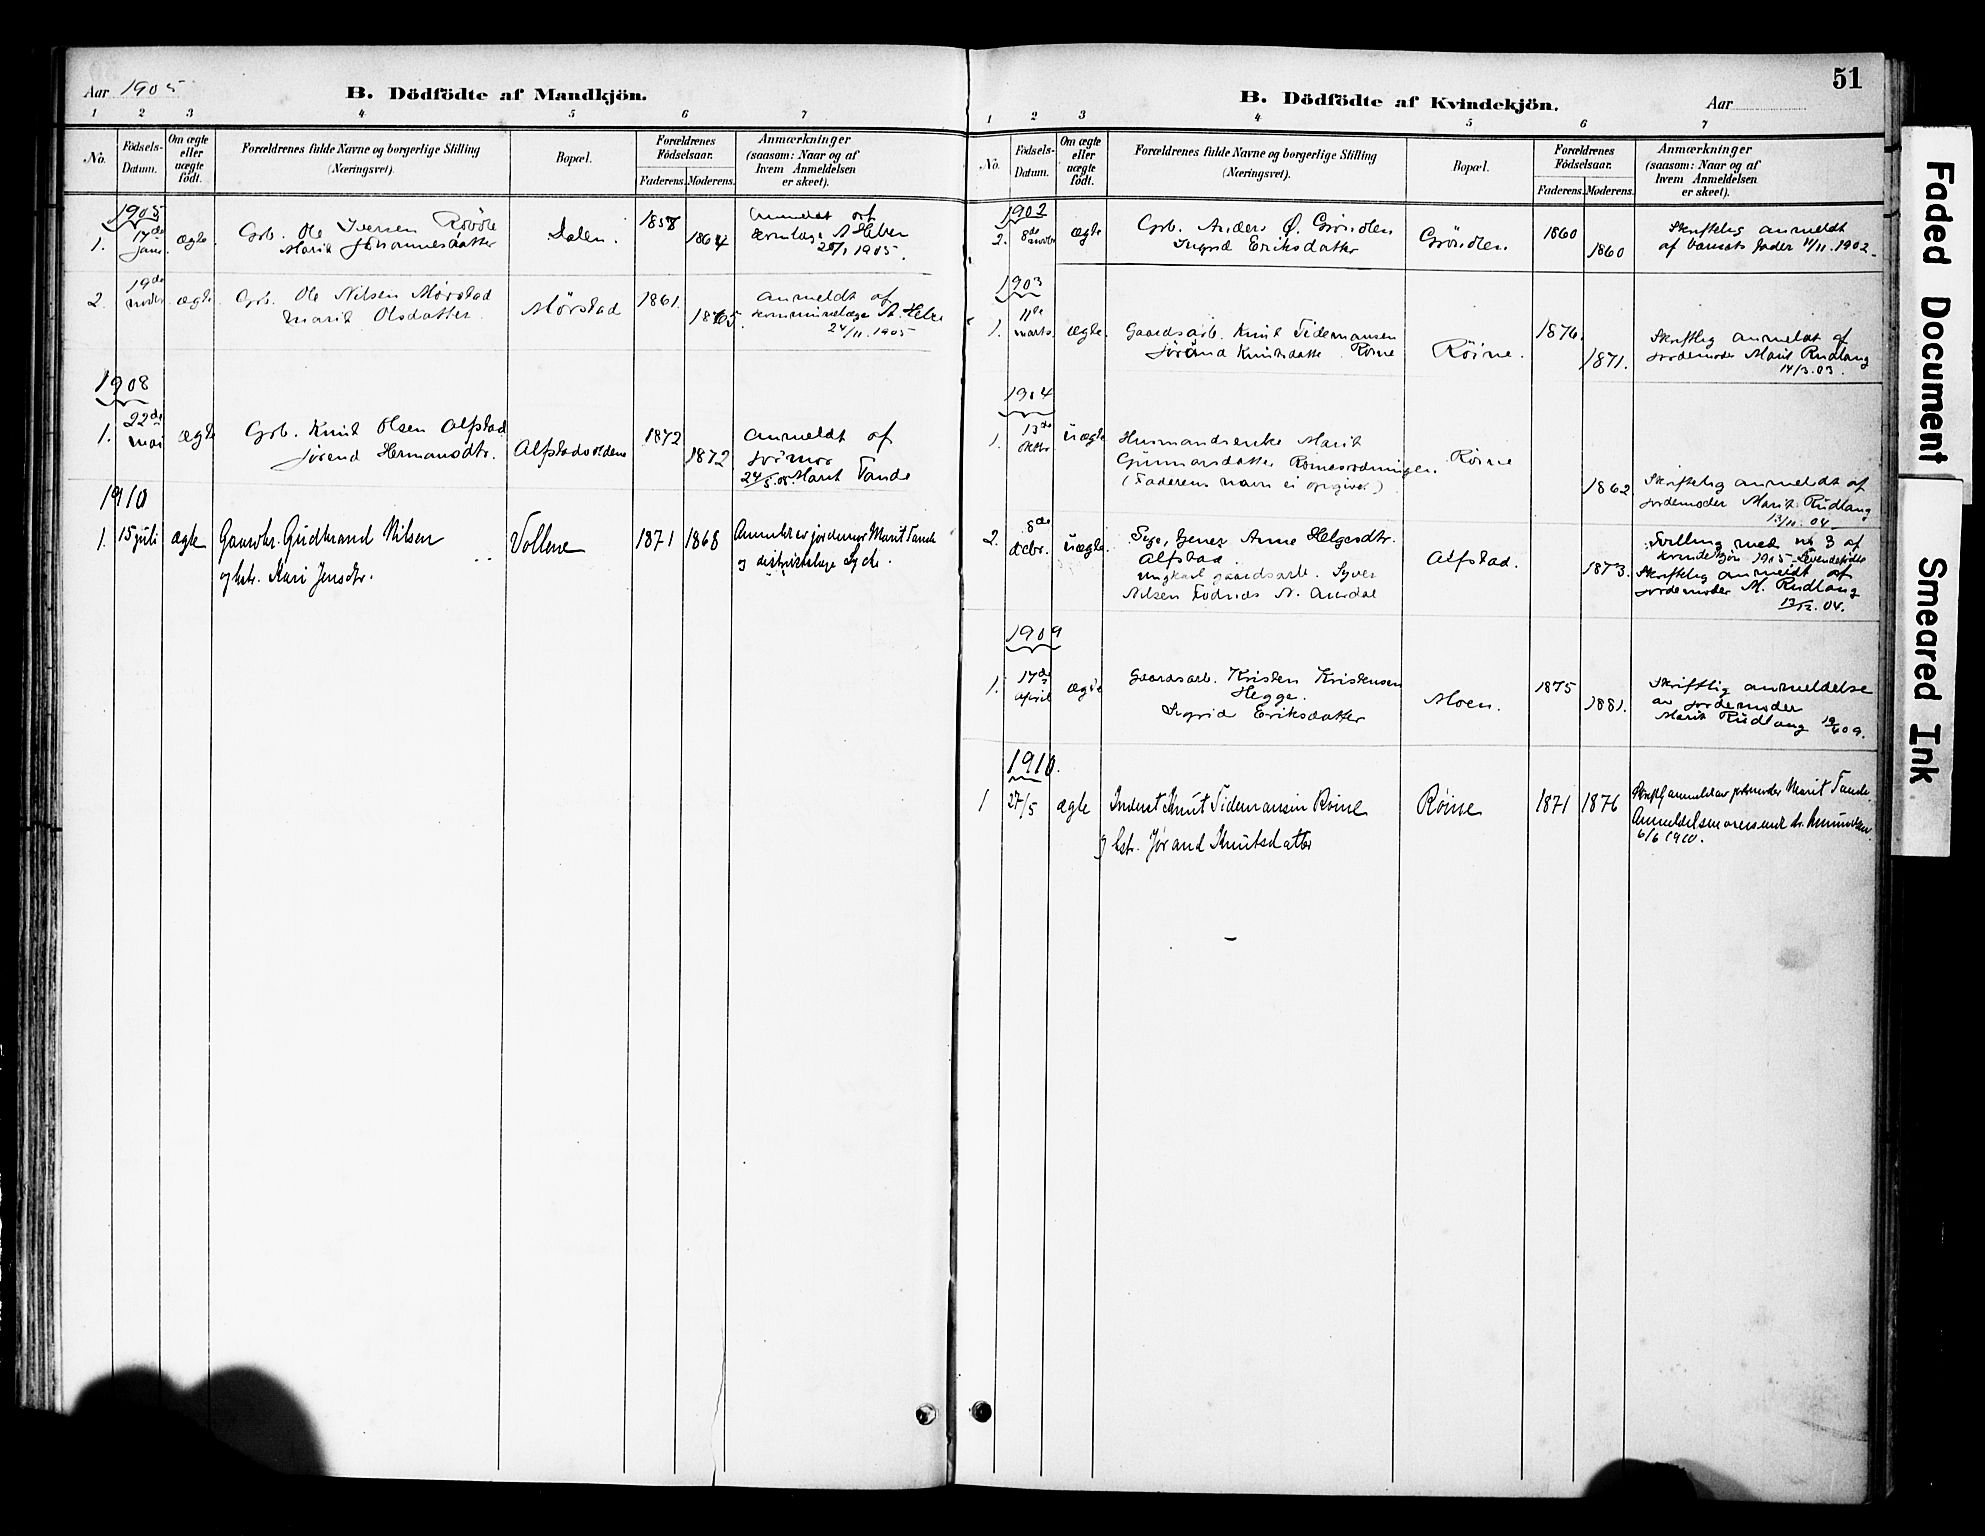 Aar 1905
B. Dödfödte af Mandkjön.
1 2 3 4 5 6 7
No.
Födsels-Datum.
Om ægte eller uægte födt.
Forældrenes fulde Navne og borgerlige Stilling
(Næringsvei).
Bopæl.
Forældrenes Födselsaar.
Faderens. Moderens.
Anmærkninger
(saasom: Naar og af
hvem Anmeldelsen
er skeet).
1905
1. 17de jan. ægte. Grb. Ole Iversen
Marit Johannesdatter
Dalen.
1864
1905.
2. 19de ægte Grb. Ole Nilsen Mørstad
Marit Olsdatter
Mørstad
1861.
1865.
anmeldt af
24/11. 1905
1908
1. 22de mai ægte Grb. Knut Olsen Alfstad
Jørend Hermansdtr.
1872
1872
anmeldt af
jordmor
Marit Tande
1910
1. 15 juli ægte Gaardbr. Gudbrand Nilsen
og hstr. Kari Jensdtr.
Vollene
1871 1868
Anmeldt av jordmor Marit Tande
og distriktslæge
51
B. Dödfödte af Kvindekjön.
Aar
1 2 3 4 5 6 7
No.
Födsels-Datum.
Om ægte eller uægte födt.
Forældrenes fulde Navne og borgerlige Stilling
(Næringsvei).
Bopæl.
Forældrenes Födselsaar.
Faderens. Moderens.
Anmærkninger
(saasom: Naar og af
hvem Anmeldelsen
er skeet).
1902
2. 8de novbr ægte Grb. Anders Ø. Gröndlen
Ingrid Eriksdatter
Gröndlen.
1860
1860
Skriftlig anmeldt
af barnets fader 11/11. 1902.
1903
1. 11te marts. ægte. Gaardsarb. Knut Tidemansen
Jörand Knutsdatter Röine
Röine.
1876.
1871.
Skriftlig anmeldt af
jordemoder Marit Rudlang
14/3. 03.
1904
1. 13de oktbr uægte Husmandsenke Marit
Gunnarsdatter
(Faderens navn ei opgivet)
Röine
1862
Skriftlig anmeldt af
jordemoder Marit Rudlang
13/11. 04.
2. 8de decbr. uægte. Anne Helgesdtr.
Alfstad.
ungkarl gaardsarb. Syver
Nilsen N. Aurdal
Alfstad.
1873.
Tvilling med no 3 af
kvindekjön 1905 Levendefödte
Skriftlig anmeldt af
jordemoder M. Rudlang
13/12. 04.
1909
1. 17de april ægte Gaardsarb. Kristen Kristensen
Hegge.
Ingrid Eriksdatter
Moen.
1875
1881.
Skriftlig anmeldelse
av jordemoder
Marit Rudlang
1910.
1 27/5 ægte Inderst Knut Tidemansen Röine
og hstr. Jørand Knutsdatter
Röine
1871 1876
Skriftl anmeldt av jordmoder Marit Tande.
6/6 1910.
Faded Document
Smeared Ink